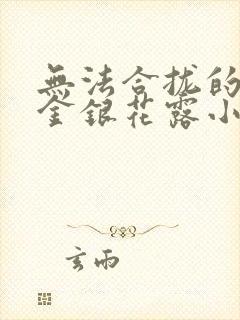 無法合拢的
金銀花露小
玄雨